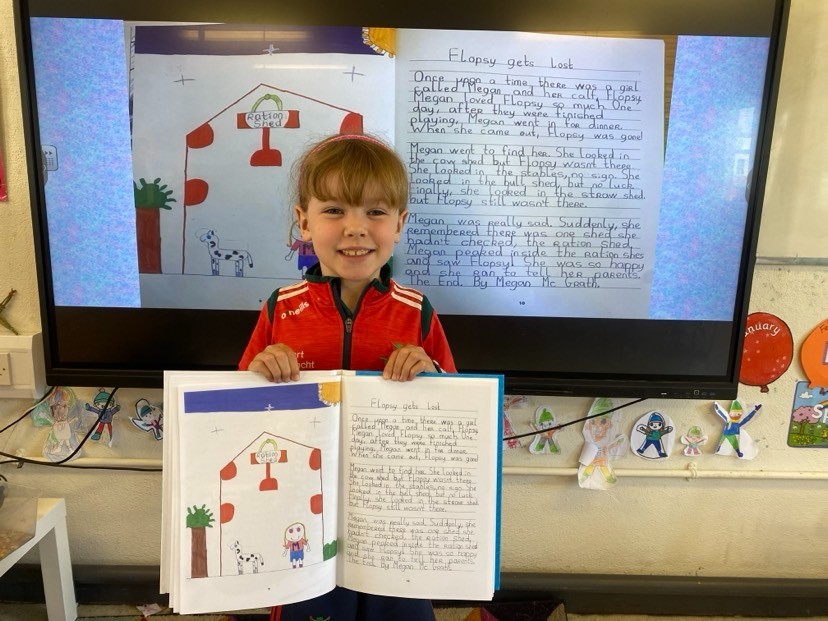 Ration
Shed
Flopsy gets lost
Once upon a time, there was a girl
called Megan and her calf, Flopsy
Megan loved Flopsy so much. One
day, after they were finished
playing, Megan went in for dinner.
When she came out, Flopsy was gone!
Megan went to find her. She looked in
the cow shed but Flopsy wasn't there.
She looked in the stables, no sign. She
looked in the bull shed, but no luck.
Finally, she looked in the straw shed
but Flopsy still wasn't there.
Megan was really sad. Suddenly, she
remembered there was one shed she
hadn't checked, the Ration Shed.
Megan peaked inside the ration shes
and saw Flopsy! She was so happy
and she ran to tell her parents.
The End. By Megan Mc Grath.
o'neills
January
Ration
Shed
Flopsy gets lost
Once upon a time, there was a girl
called Megan and her calf, Flopsy
Megan loved Flopsy so much. One
day, after they were finished
playing, Megan went in for dinner.
When she came out, Flopsy was gone!
Megan went to find her. She looked in
the cow shed but Flopsy wasn't there.
She looked in the stables, no sign. She
looked in the bull shed, but no luck.
Finally, she looked in the straw shed
but Flopsy still wasn't there.
Megan was really sad. Suddenly, she
remembered there was one shed she
hadn't checked, the Ration Shed.
Megan peaked inside the ration shes
and saw Flopsy! She was so happy
and she ran to tell her parents.
The End. By Megan Mc Grath.